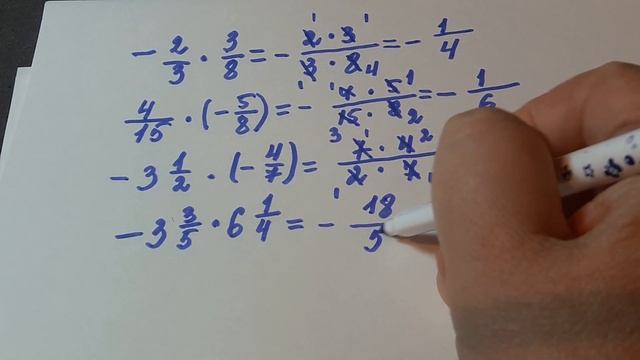 - 2/3 · 3/8 = - 2 · 3 / 3 · 8 = - 1/4
4/15 · (- 5/8) = - 4 · 5 / 15 · 8 = - 1/6
- 3 1/2 · (- 4/7) = 7 · 4 / 2 · 7
- 3 3/5 · 6 1/4 = - 18/5